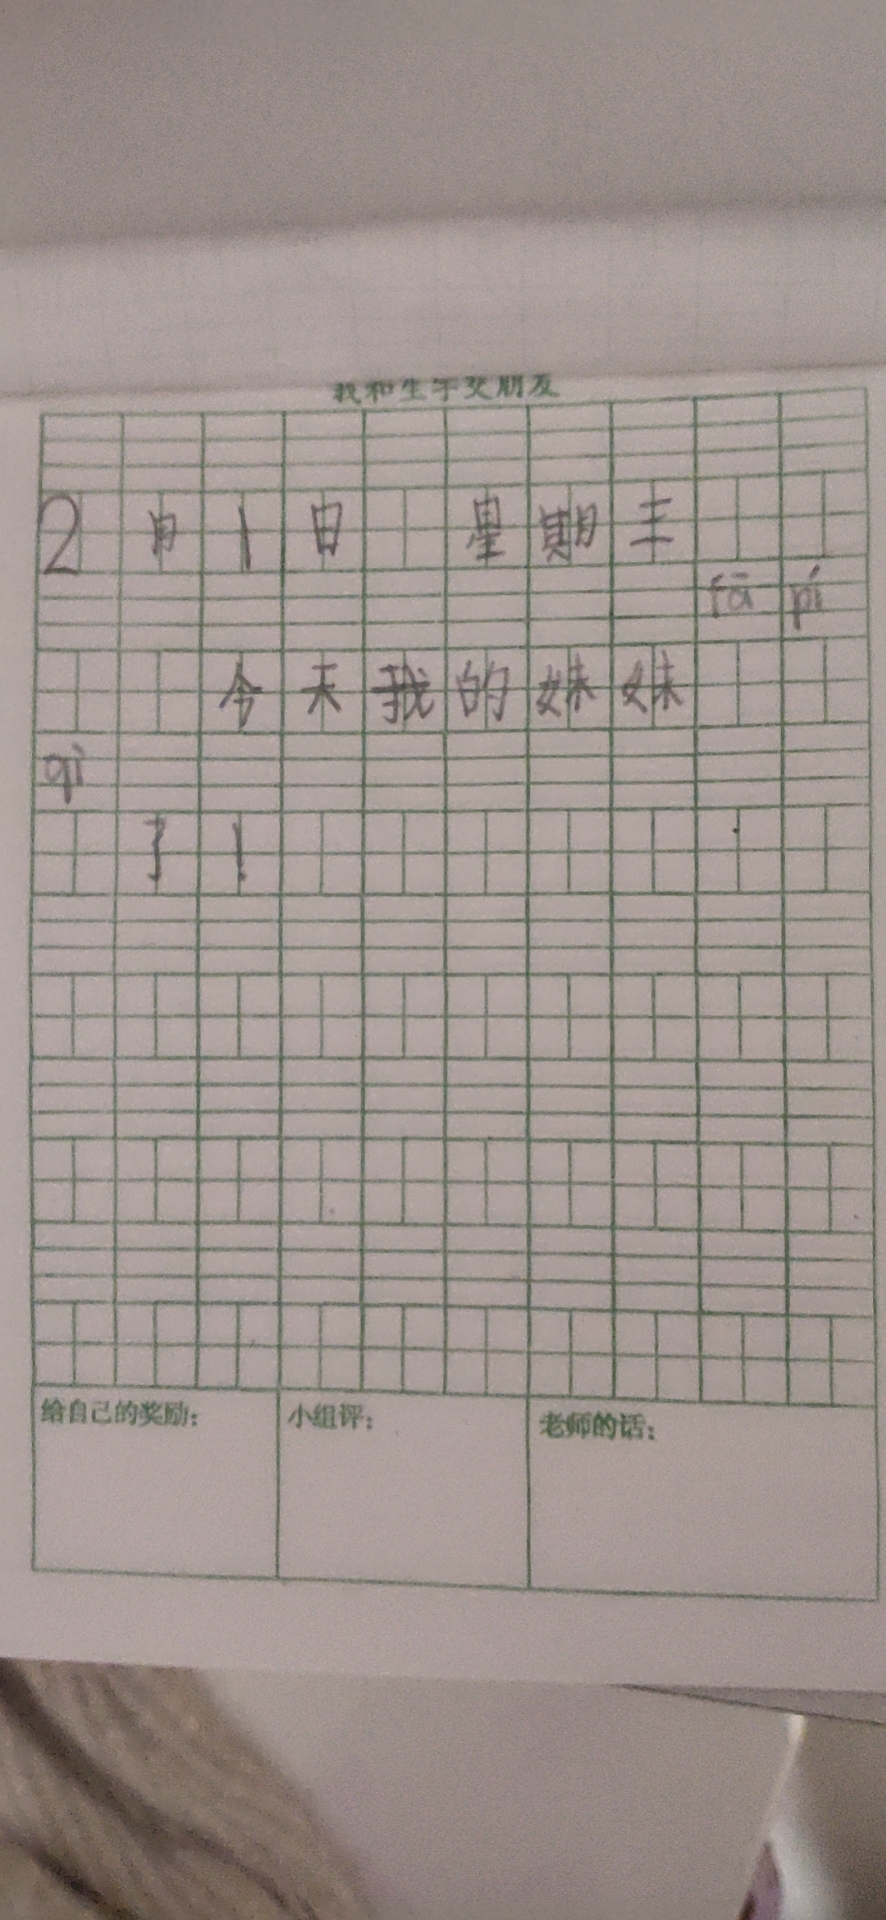 我和生字交朋友
2月1日 星期三
fā pí
今天我的妹妹
qì
了!
给自己的奖励: 小组评: 老师的话: